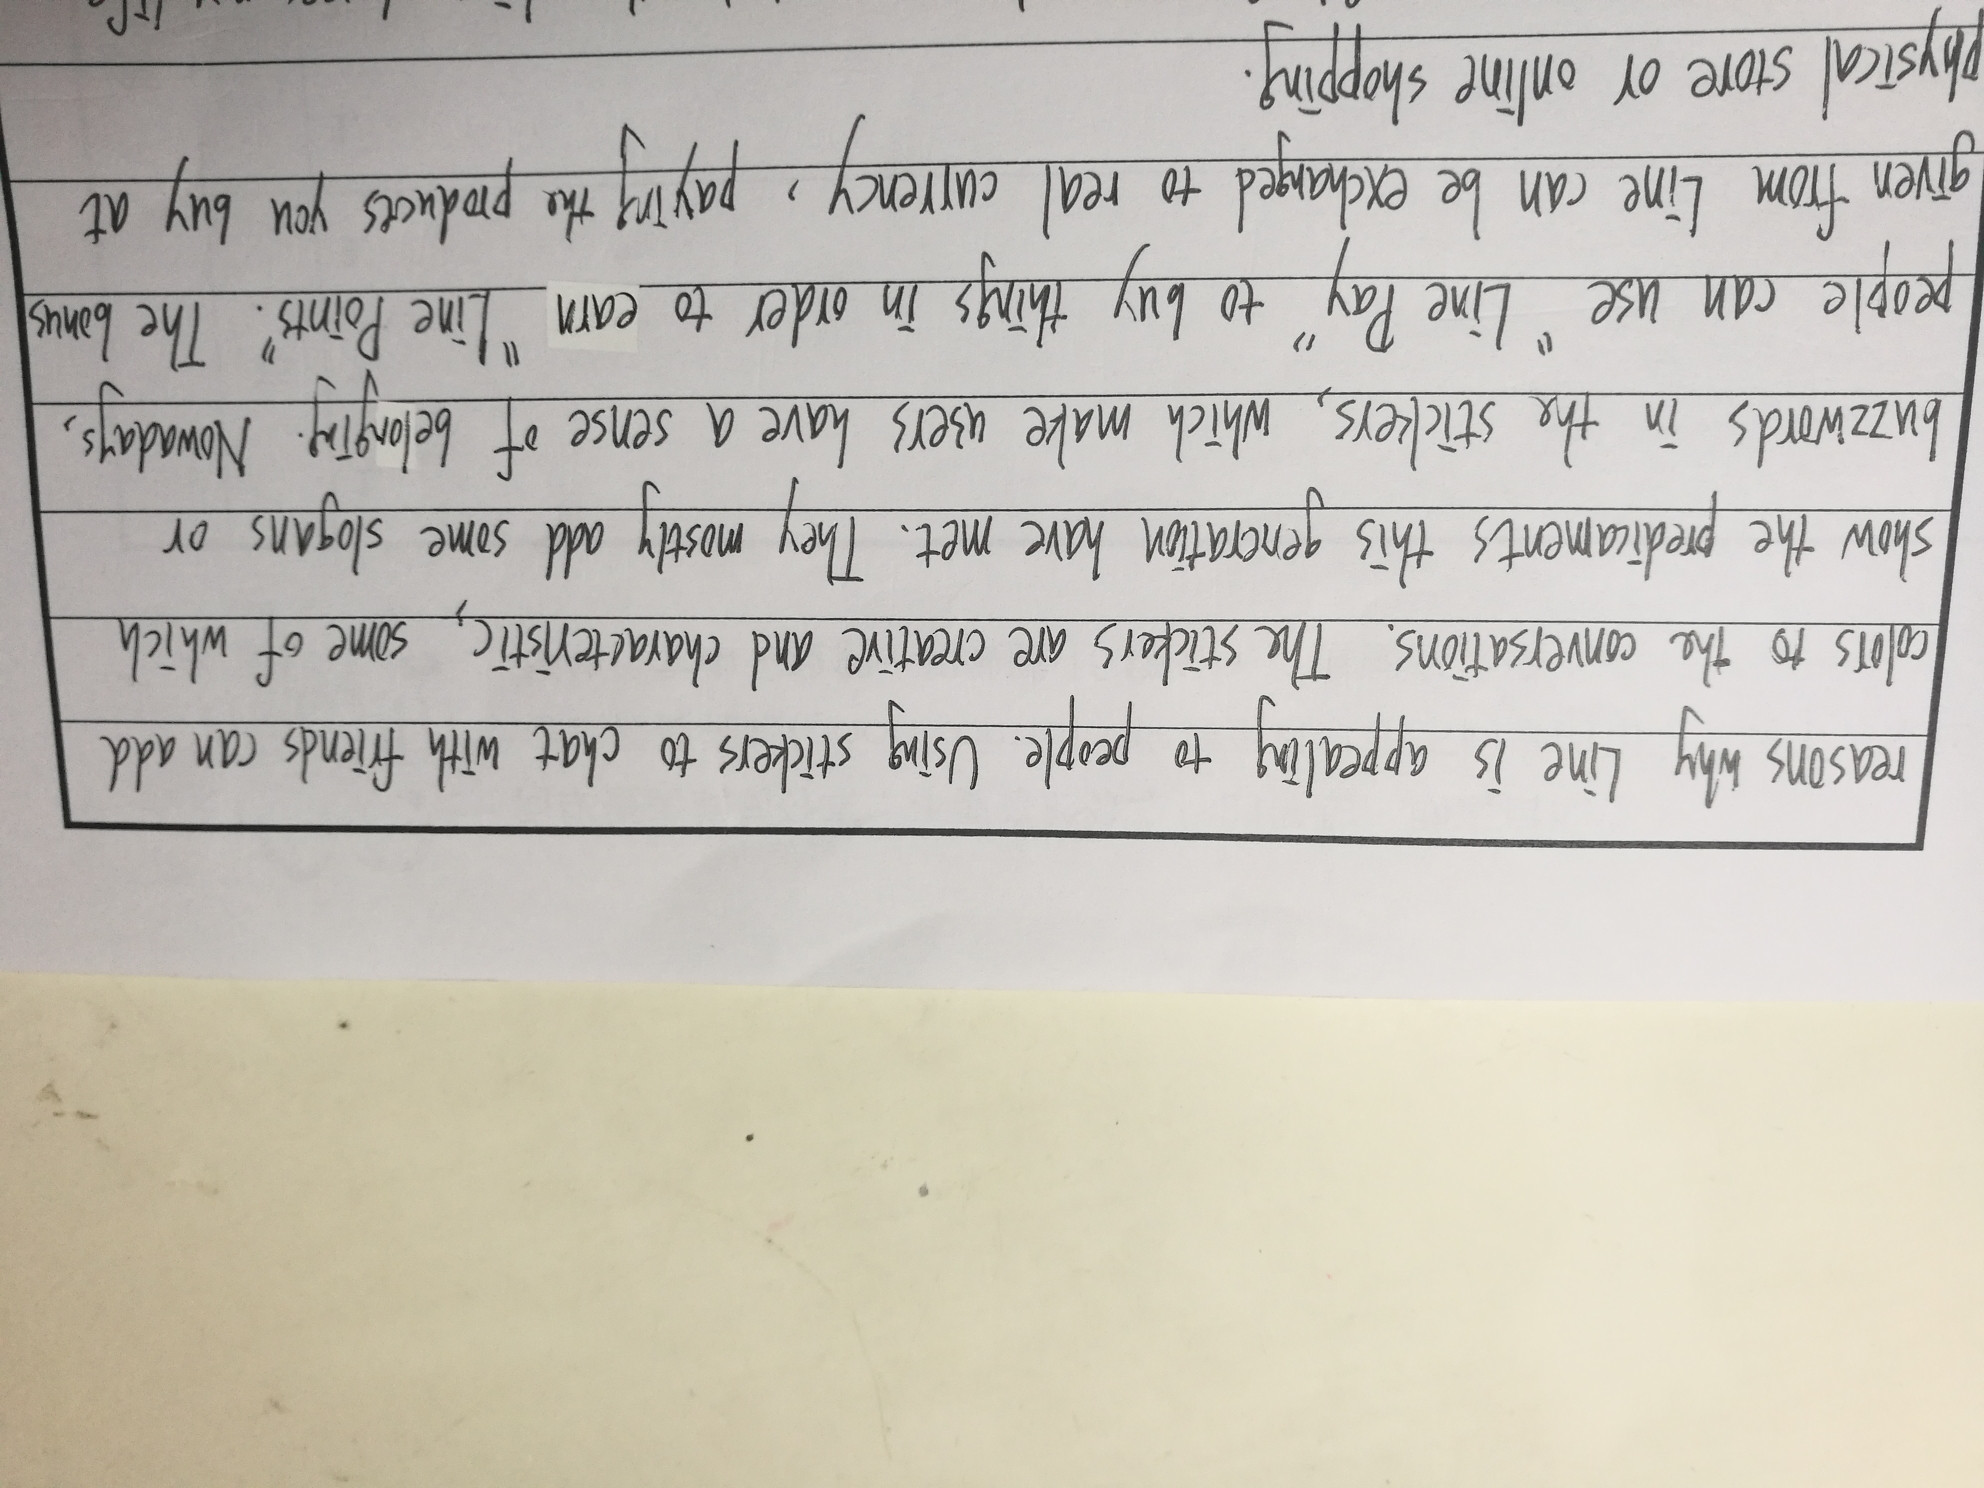 reasons why Line is appealing to people. Using stickers to chat with friends can add
colors to the conversations. The stickers are creative and characteristic, some of which
show the predicaments this generation have met. They mostly add some slogans or
buzzwords in the stickers, which make users have a sense of belonging. Nowadays,
people can use "Line Pay" to buy things in order to earn "Line Points". The bonus
given from Line can be exchanged to real currency, paying the products you buy at
physical store or online shopping.
life